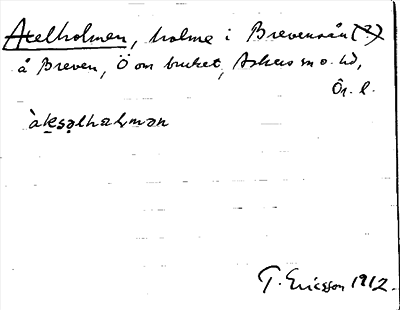 Axelholmen, holme i Brevensån (?)
å Breven, Ö om bruket, Askers sn o. hd,
Ör. l.
àksəlhəɫmən
T. Ericsson 1912.